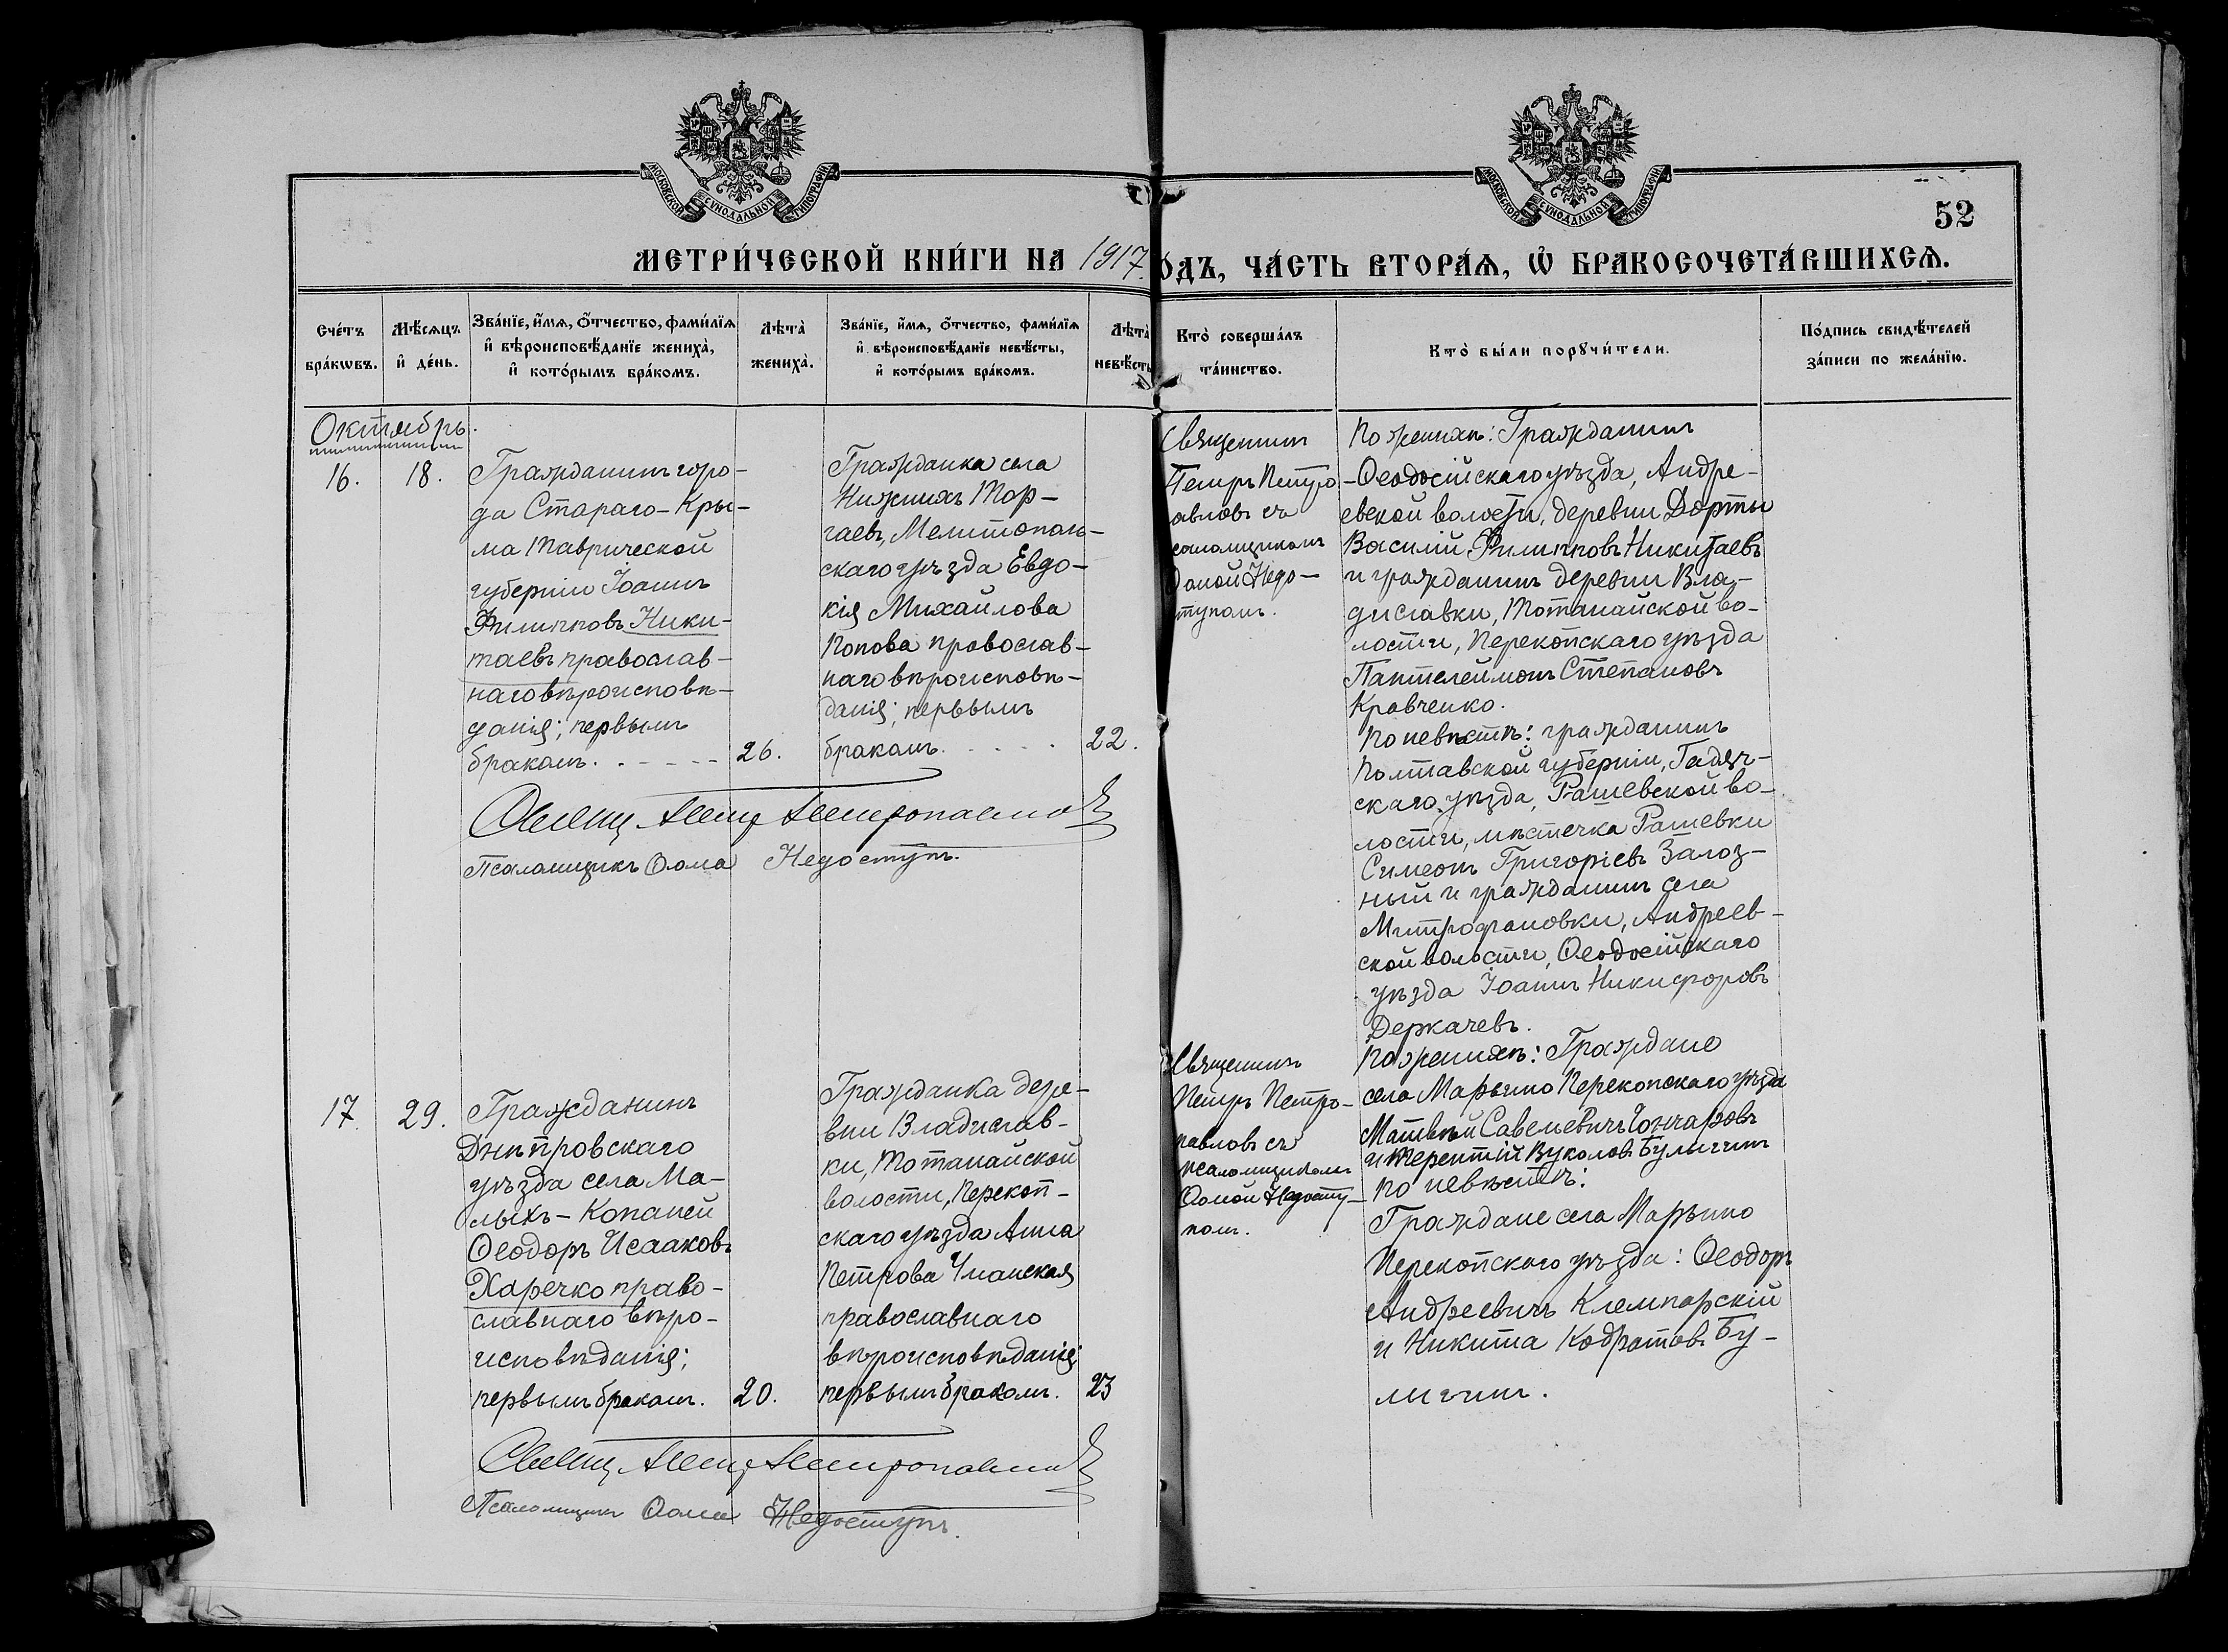 МОСКОВСКОЙ СѴНОДАЛЬНОЙ ТИПОГРАФІИ
МОСКОВСКОЙ СѴНОДАЛЬНОЙ ТИПОГРАФІИ
52
МЕТРИ́ЧЕСКОЙ КНИ́ГИ НА 1917
О́ДЪ, ЧА́СТЬ ВТОРА́Ѧ, Ѡ҆ БРАКОСОЧЕТА́ВШИХСѦ.
Сче́тъ
бра́кѡвъ.
Мѣ́сѧцъ
и҆ де́нь.
Зва́нїе, и҆́мѧ, ѻ҆́тчество, фами́лїѧ
и҆ вѣроисповѣ́данїе жениха̀,
и҆ кото́рымъ бра́комъ.
Лѣ́та̀
жениха̀.
Зва́нїе, и҆́мѧ, ѻ҆́тчество, фами́лїѧ
и҆ вѣроисповѣ́данїе невѣ́сты,
и҆ кото́рымъ бра́комъ.
Лѣ́та̀
невѣ́сты
Кто̀ соверша́лъ
та́инство.
Кто̀ бы́ли порꙋчи́тели.
По́дпись свидѣ́телей
за́писи по жела́нїю.
Октябрь.
16.
18.
Гражданинъ горо-
да Стараго-Кры-
ма Таврической
губерніи Іоаннъ
Филипповъ Ники-
таевъ православ-
наго вѣроисповѣ-
данія; первымъ
бракомъ.
26.
Гражданка села
Нижнихъ Тор-
гаевъ, Мелитополь-
скаго уѣзда Евдо-
кія Михайлова
Попова православ-
наго вѣроисповѣ-
данія; первымъ
бракомъ.
22.
Священникъ
Петръ Петро-
павловъ съ
псаломщикомъ
Ѳомой Недо-
ступомъ.
По женихѣ: Гражданинъ
Ѳеодосійскаго уѣзда, Андре-
евской волости, деревни Дорты
Василій Филипповъ Никитаевъ
и гражданинъ деревни Вла-
диславки, Тотанайской во-
лости, Перекопскаго уѣзда
Пантелеймонъ Степановъ
Кравченко.
По невѣстѣ: гражданинъ
Полтавской губерніи, Гадяч-
скаго уѣзда, Рашевской во-
лости, мѣстечка Рашевки
Симеонъ Григоріевъ Залоз-
ный и гражданинъ села
Митрофановки, Андреев-
ской волости, Ѳеодосійскаго
уѣзда Іоаннъ Никифоровъ
Деркачевъ.
Священ. Петръ Петропавловъ
Псаломщикъ Ѳома Недоступъ.
17.
29.
Гражданинъ
Днѣпровскаго
уѣзда села Ма-
лыхъ-Копаней
Ѳеодоръ Исааковъ
Харечко право-
славнаго вѣро-
исповѣданія;
первымъ бракомъ.
20.
Гражданка дере-
вни Владислав-
ки, Тотанайской
волости, Перекоп-
скаго уѣзда Анна
Петрова Уманская
православнаго
вѣроисповѣданія;
первымъ бракомъ.
23
Священникъ
Петръ Петро-
павловъ съ
псаломщикомъ
Ѳомой Недосту-
помъ.
По женихѣ: Граждане
села Марьино Перекопскаго уѣзда
Матвѣй Савельевичъ Гончаровъ
и Терентій Вуколовъ Булыгинъ
По невѣстѣ:
Граждане села Марьино
Перекопскаго уѣзда: Ѳеодоръ
Андреевичъ Клемпарскій
и Никита Кодратовъ Бу-
лыгинъ.
Священ. Петръ Петропавловъ
Псаломщикъ Ѳома Недоступъ.